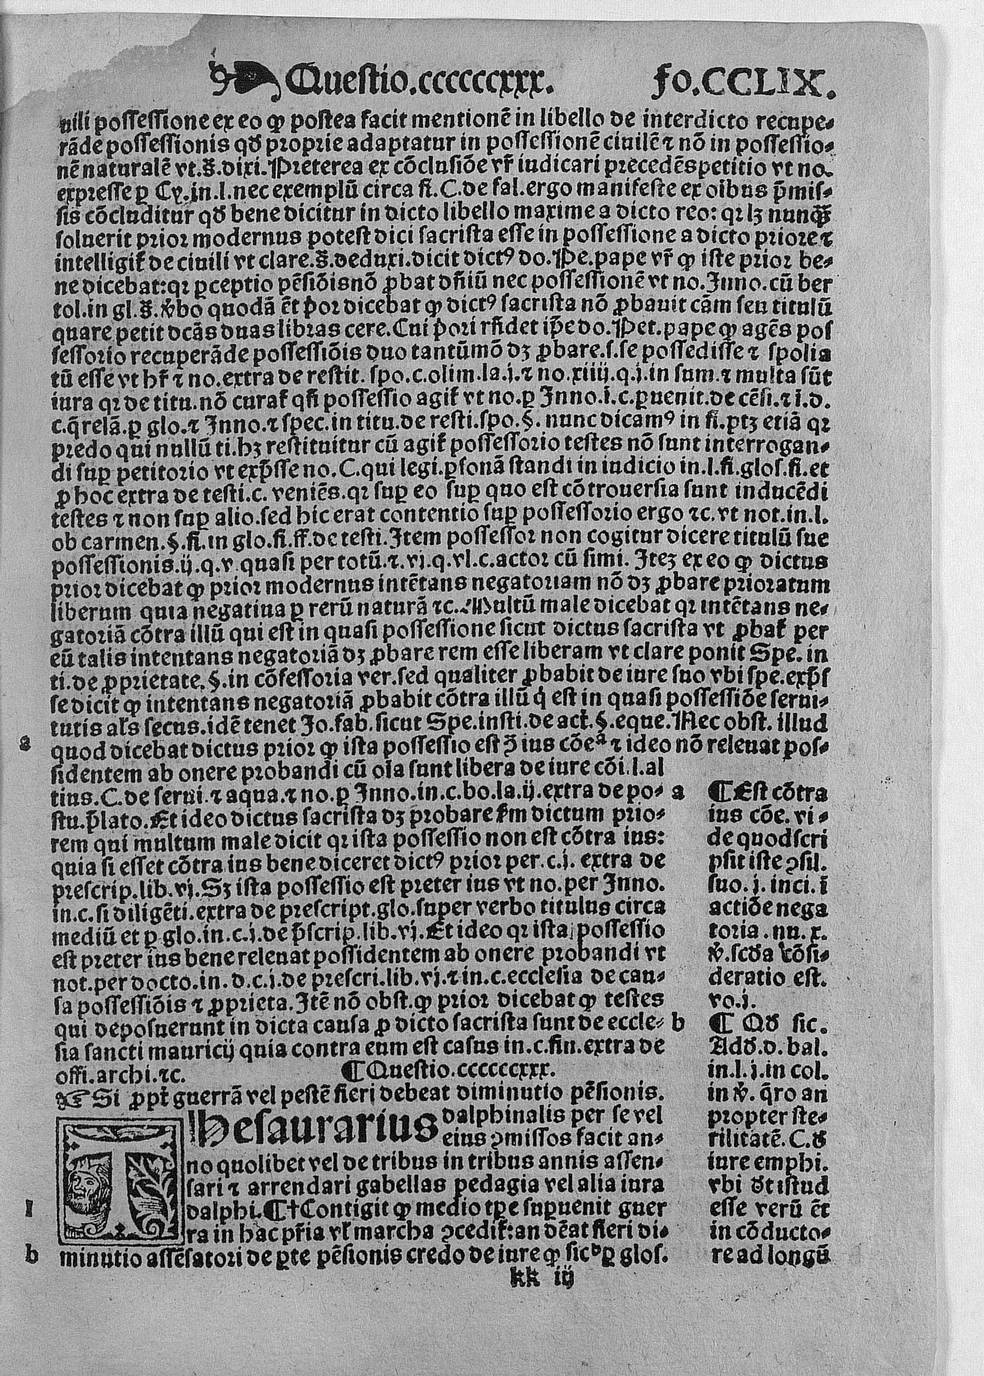 Questio.ccccccxxx. fo.CCLIX.
uili possessione ex eo ꝙ postea facit mentionē in libello de interdicto recupe-
rāde possessionis qđ proprie adaptatur in possessionē ciuilē ⁊ nō in possessio-
nē naturalē vt.s̄.dixi. Preterea ex cōclusiōe vr̄ iudicari precedēs petitio vt no.
expresse ꝑ Cy.in.l.nec exemplū circa fi.C.de fal.ergo manifeste ex oībus p̄mis-
sis cōcluditur qđ bene dicitur in dicto libello maxime a dicto reo: qꝛ lꝫ nunꝙ̄
soluerit prior modernus potest dici sacrista esse in possessione a dicto priore ⁊
intelligit̄ de ciuili vt clare.s̄.deduxi.dicit dictꝰ do.Pe.pape vr̄ ꝙ iste prior be-
ne dicebat:qꝛ ꝑceptio pēsiōis nō ꝓbat dn̄iū nec possessionē vt no.Inno.cū ber
tol.in gl.s̄.v̄bo quodā ēt p̄or dicebat ꝙ dictꝰ sacrista nō ꝓbauit cām seu titulū
quare petit dcās duas libras cere.Cui p̄ori rn̄det ip̄e do.Pet.pape ꝙ agēs pos
sessorio recuperāde possessiōis duo tantūmō dꝫ ꝓbare.s.se possedisse ⁊ spolia
tū esse vt hr̄ ⁊ no.extra de restit.spo.c.olim.la.j.⁊ no.xiiij.q.j.in sum.⁊ multa sūt
iura qꝛ de titu.nō curat̄ qn̄ possessio agit̄ vt no.ꝑ Inno.i.c.ꝑuenit.de cēsi.⁊ i.d.
c.q̄relā.ꝑ glo.⁊ Inno.⁊ spec.in titu.de resti.spo.§.nunc dicamꝰ in fi.ptꝫ etiā qꝛ
predo qui nullū ti.hꝫ restituitur cū agit̄ possessorio testes nō sunt interrogan-
di suꝑ petitorio vt exp̄sse no.C.qui legi.ꝑsonā standi in iudicio in.l.fi.glos.fi.et
ꝓ hoc extra de testi.c.veniēs.qꝛ suꝑ eo suꝑ quo est cōtrouersia sunt inducēdi
testes ⁊ non suꝑ alio.sed hic erat contentio suꝑ possessorio ergo ⁊c.vt not.in.l.
ob carmen.§.fi.in glo.fi.ff.de testi.Item possessor non cogitur dicere titulū sue
possessionis.ij.q.v.quasi per totū.⁊.vj.q.vl.c.actor cū simi. Iteꝫ ex eo ꝙ dictus
prior dicebat ꝙ prior modernus intētans negatoriam nō dꝫ ꝓbare prioratum
liberum quia negatiua ꝑ rerū naturā ⁊c. Multū male dicebat qꝛ intētans ne-
gatoriā cōtra illū qui est in quasi possessione sicut dictus sacrista vt ꝓbat̄ per
eū talis intentans negatoriā dꝫ ꝓbare rem esse liberam vt clare ponit Spe.in
ti.de ꝓprietate.§.in cōfessoria ver.sed qualiter ꝓbabit de iure suo vbi spe.exp̄s
se dicit ꝙ intentans negatoriā ꝓbabit cōtra illū q̇ est in quasi possessiōe serui-
tutis als̄ secus.idē tenet Jo.fab.sicut Spe.insti.de act̄.§.eque.Nec obst.illud
a quod dicebat dictus prior ꝙ ista possessio est ꝯ̄ ius cōeᵃ ⁊ ideo nō releuat pos-
sidentem ab onere probandi cū oīa sunt libera de iure cōi.l.al
tius.C.de serui.⁊ aqua.⁊ no.ꝑ Inno.in.c.bo.la.ij.extra de po-
stu.p̄lato.Et ideo dictus sacrista dꝫ probare s̄m dictum prio-
rem qui multum male dicit qꝛ ista possessio non est cōtra ius:
quia si esset cōtra ius bene diceret dictꝰ prior per.c.j. extra de
prescrip.lib.vj.Sꝫ ista possessio est preter ius vt no.per Inno.
in.c.si diligēti.extra de prescript.glo.super verbo titulus circa
mediū et ꝑ glo.in.c.j.de p̄scrip.lib.vj.Et ideo qꝛ ista possessio
est preter ius bene releuat possidentem ab onere probandi vt
not.per docto.in.d.c.j.de prescri.lib.vj.⁊ in.c.ecclesia de cau-
sa possessiōis ⁊ ꝓprieta.Itē nō obst.ꝙ prior dicebat ꝙ testes
qui deposuerunt in dicta causa ꝓ dicto sacrista sunt de eccle-
sia sancti mauricij quia contra eum est casus in.c.fin.extra de
offi.archi.⁊c. ¶Questio.ccccccxxx.
☞ Si ꝓpt̄ guerrā vel pestē fieri debeat diminutio pēsionis.
THesaurarius dalphinalis per se vel
eius ꝯmissos facit an-
no quolibet vel de tribus in tribus annis assen-
sari ⁊ arrendari gabellas pedagia vel alia iura
l dalphi.¶†Contigit ꝙ medio tꝑe supuenit guer
ra in hac pr̄ia vl̄ marcha ꝯcedit̄:an dēat fieri di-
b minutio assēsatori de ꝑte pēsionis credo de iure ꝙ sicᵇꝑ glos.
a ¶Est cōtra
ius cōe. vi-
de quod scri
psit iste ꝯsil.
suo.j. inci.ī
actiōe nega
toria.nu.x.
v̄.scđa cōsi-
deratio est.
vo.j.
b ¶ Qđ sic.
Adđ.d.bal.
in.l.j.in col.
in v̄.q̄ro an
propter ste-
rilitatē.C.đ
iure emphi.
vbi đt istud
esse verū ēt
in cōducto-
re ad longū
kk iij